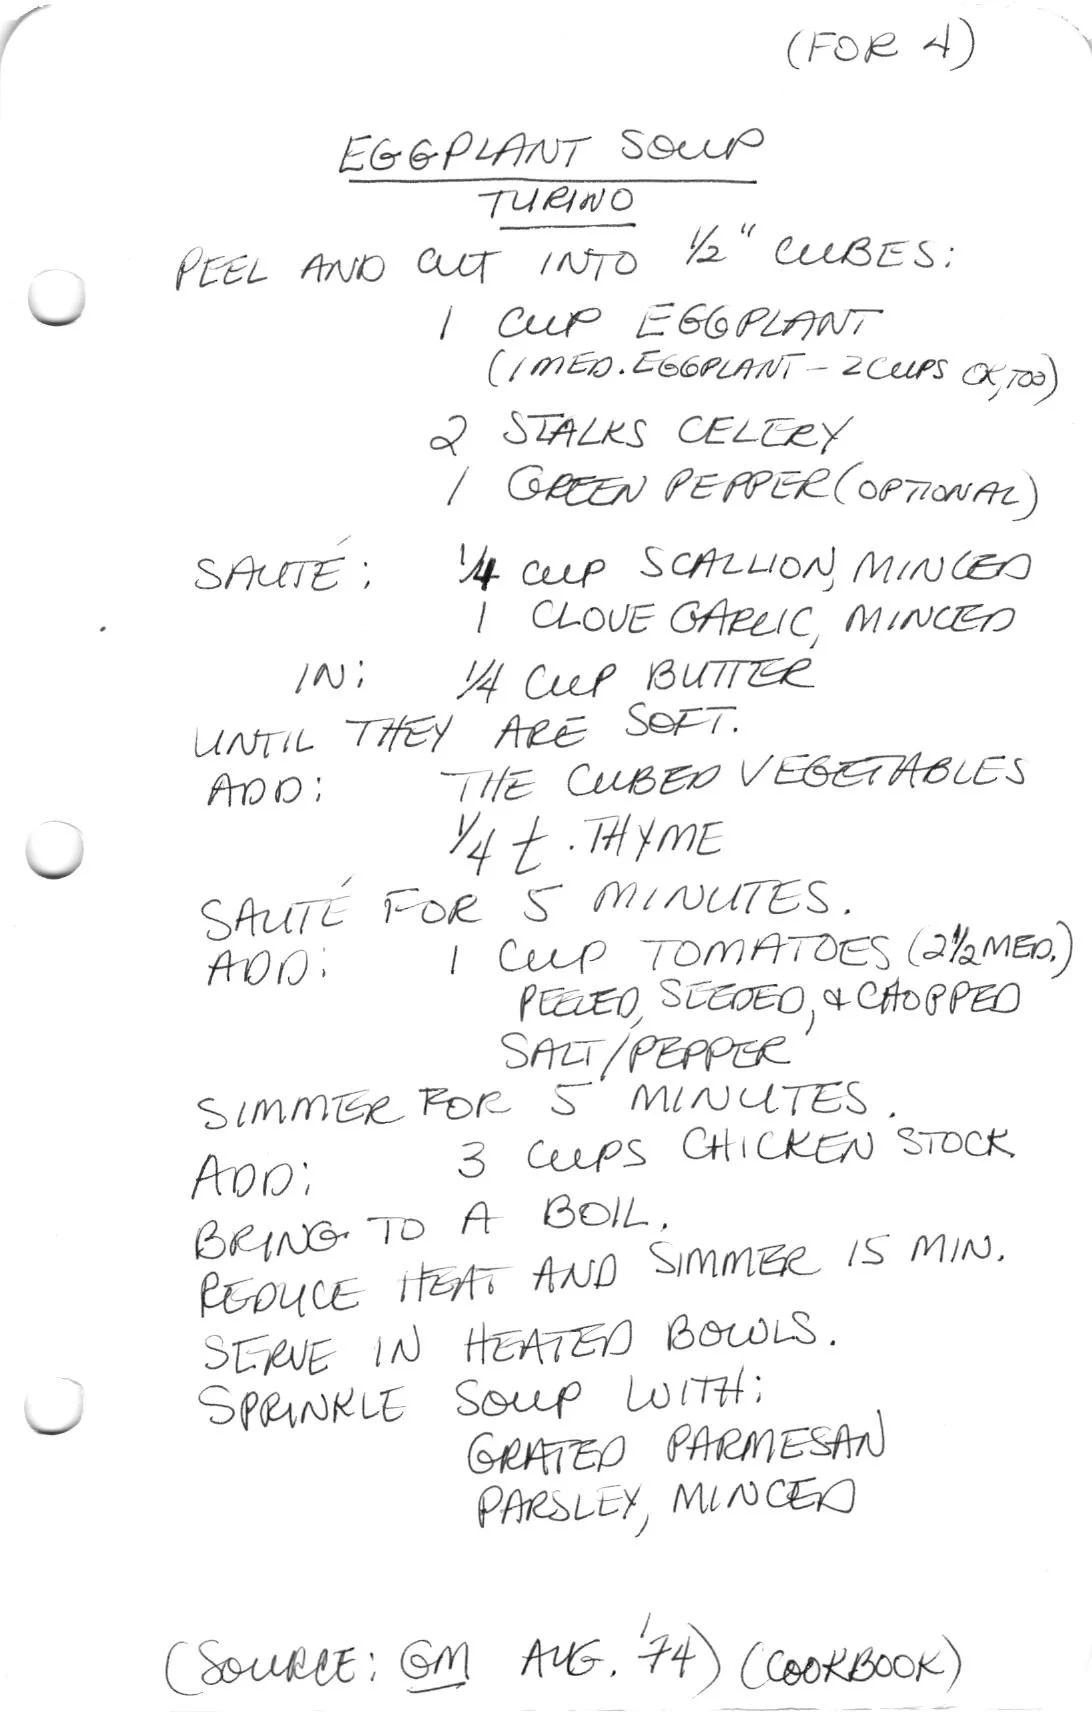 (FOR 4)
EGGPLANT SOUP
TURINO
PEEL AND CUT INTO 1/2" CUBES:
1 CUP EGGPLANT
(1 MED. EGGPLANT – 2 CUPS OK, TOO)
2 STALKS CELERY
1 GREEN PEPPER (OPTIONAL)
SAUTÉ: 1/4 CUP SCALLION, MINCED
1 CLOVE GARLIC, MINCED
IN: 1/4 CUP BUTTER
UNTIL THEY ARE SOFT.
ADD: THE CUBED VEGETABLES
1/4 t. THYME
SAUTÉ FOR 5 MINUTES.
ADD: 1 CUP TOMATOES (2 1/2 MED.)
PEELED, SEEDED, & CHOPPED
SALT/PEPPER
SIMMER FOR 5 MINUTES.
ADD: 3 CUPS CHICKEN STOCK
BRING TO A BOIL.
REDUCE HEAT AND SIMMER 15 MIN.
SERVE IN HEATED BOWLS.
SPRINKLE SOUP WITH:
GRATED PARMESAN
PARSLEY, MINCED
(SOURCE: GM AUG. '74) (COOKBOOK)